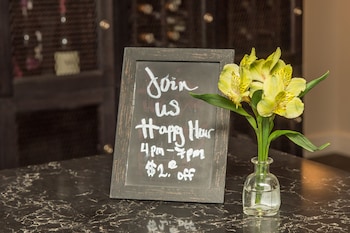 Join
us
Happy Hour
4pm-7pm
$2.° off